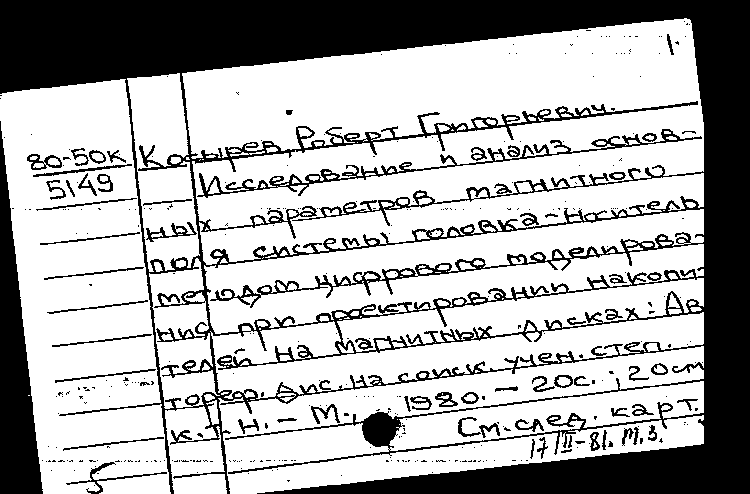 1.
80-50к
5149
Козырев, Роберт Григорьевич.
Исследование и анализ основ-
ных параметров магнитного
поля системы головка-носитель
методом цифрового моделирова-
ния при проектировании накопи-
телей на магнитных дисках: Ав
тореф. дис. на соиск. учен. степ.
к.т.н. - М., 1980. - 20с.; 20см
См. след. карт.
17/III-81. м.з.
5